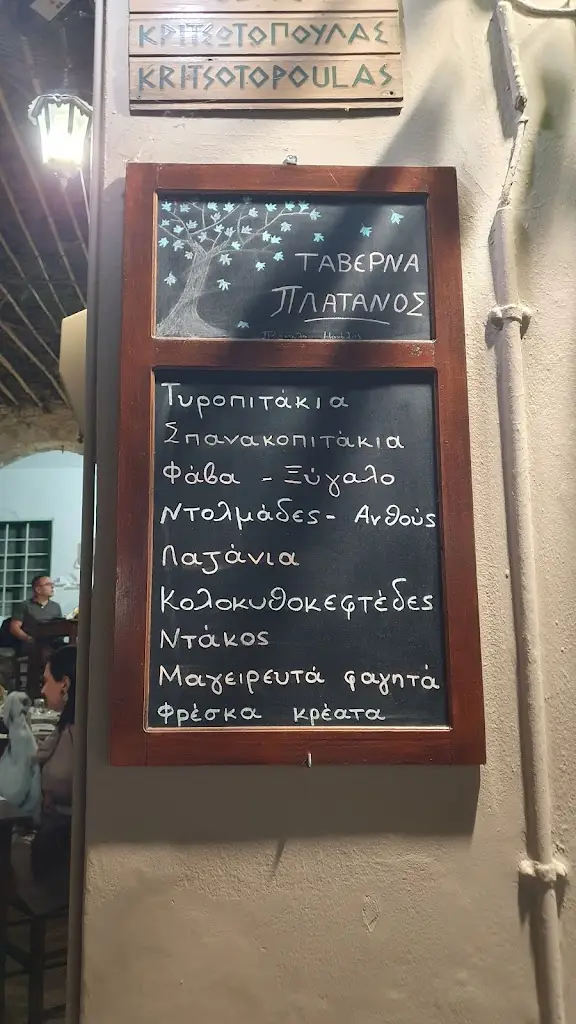 ΚΡΙΤΣΩΤΟΠΟΥΛΑΣ
KRITSOTOPOULAS
ΤΑΒΕΡΝΑ
ΠΛΑΤΑΝΟΣ
Τυροπιτάκια
Σπανακοπιτάκια
Φάβα - Ξύγαλο
Ντολμάδες - Ανθούς
Λαζάνια
Κολοκυθοκεφτέδες
Ντάκος
Μαγειρευτά φαγητά
Φρέσκα κρέατα